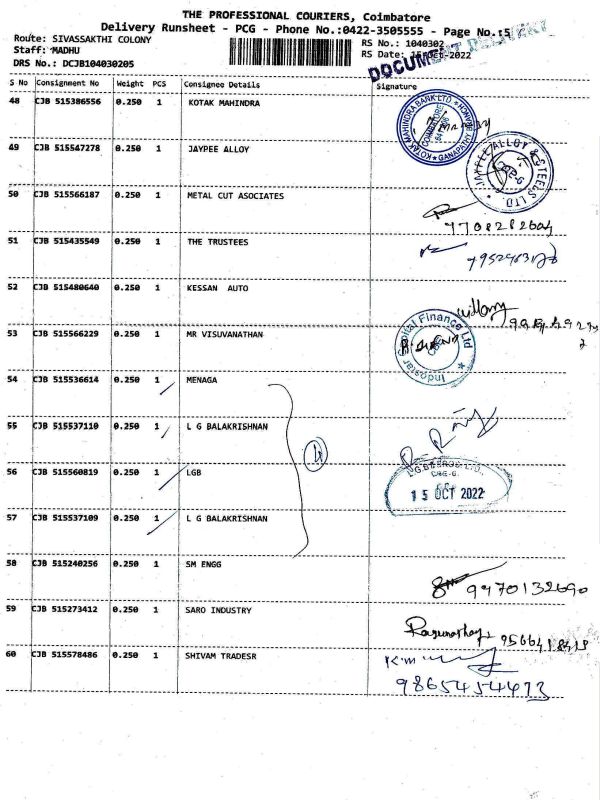 THE PROFESSIONAL COURIERS, Coimbatore
Delivery Runsheet - PCG - Phone No.:0422-3505555 - Page No.:5
Route: SIVASSAKTHI COLONY
RS No.: 1040302
Staff: MADHU
RS Date: 15-Oct-2022
DRS No.: DCJB104030205
DOCUMENT DELIVERY
S No Consignment No Weight PCS Consignee Details Signature
48 CJB 515386556 0.250 1 KOTAK MAHINDRA
KOTAK MAHINDRA BANK LTD GANAPATHY BRANCH
COIMBATORE
49 CJB 515547278 0.250 1 JAYPEE ALLOY
JAYPEE ALLOY & STEELS LTD.
50 CJB 515566187 0.250 1 METAL CUT ASOCIATES
51 CJB 515435549 0.250 1 THE TRUSTEES
52 CJB 515480640 0.250 1 KESSAN AUTO
53 CJB 515566229 0.250 1 MR VISUVANATHAN
Indostar Capital Finance Ltd
54 CJB 515536614 1 0.250 MENAGA
55 CJB 515537110 0.250 1 L G BALAKRISHNAN
4
56 CJB 515560819 0.250 1 LGB
15 OCT 2022
57 CJB 515537109 0.250 1 L G BALAKRISHNAN
58 CJB 515240256 0.250 1 SM ENGG
9970132690
59 CJB 515273412 0.250 1 SARO INDUSTRY
60 CJB 515578486 0.250 1 SHIVAM TRADESR
9865454473